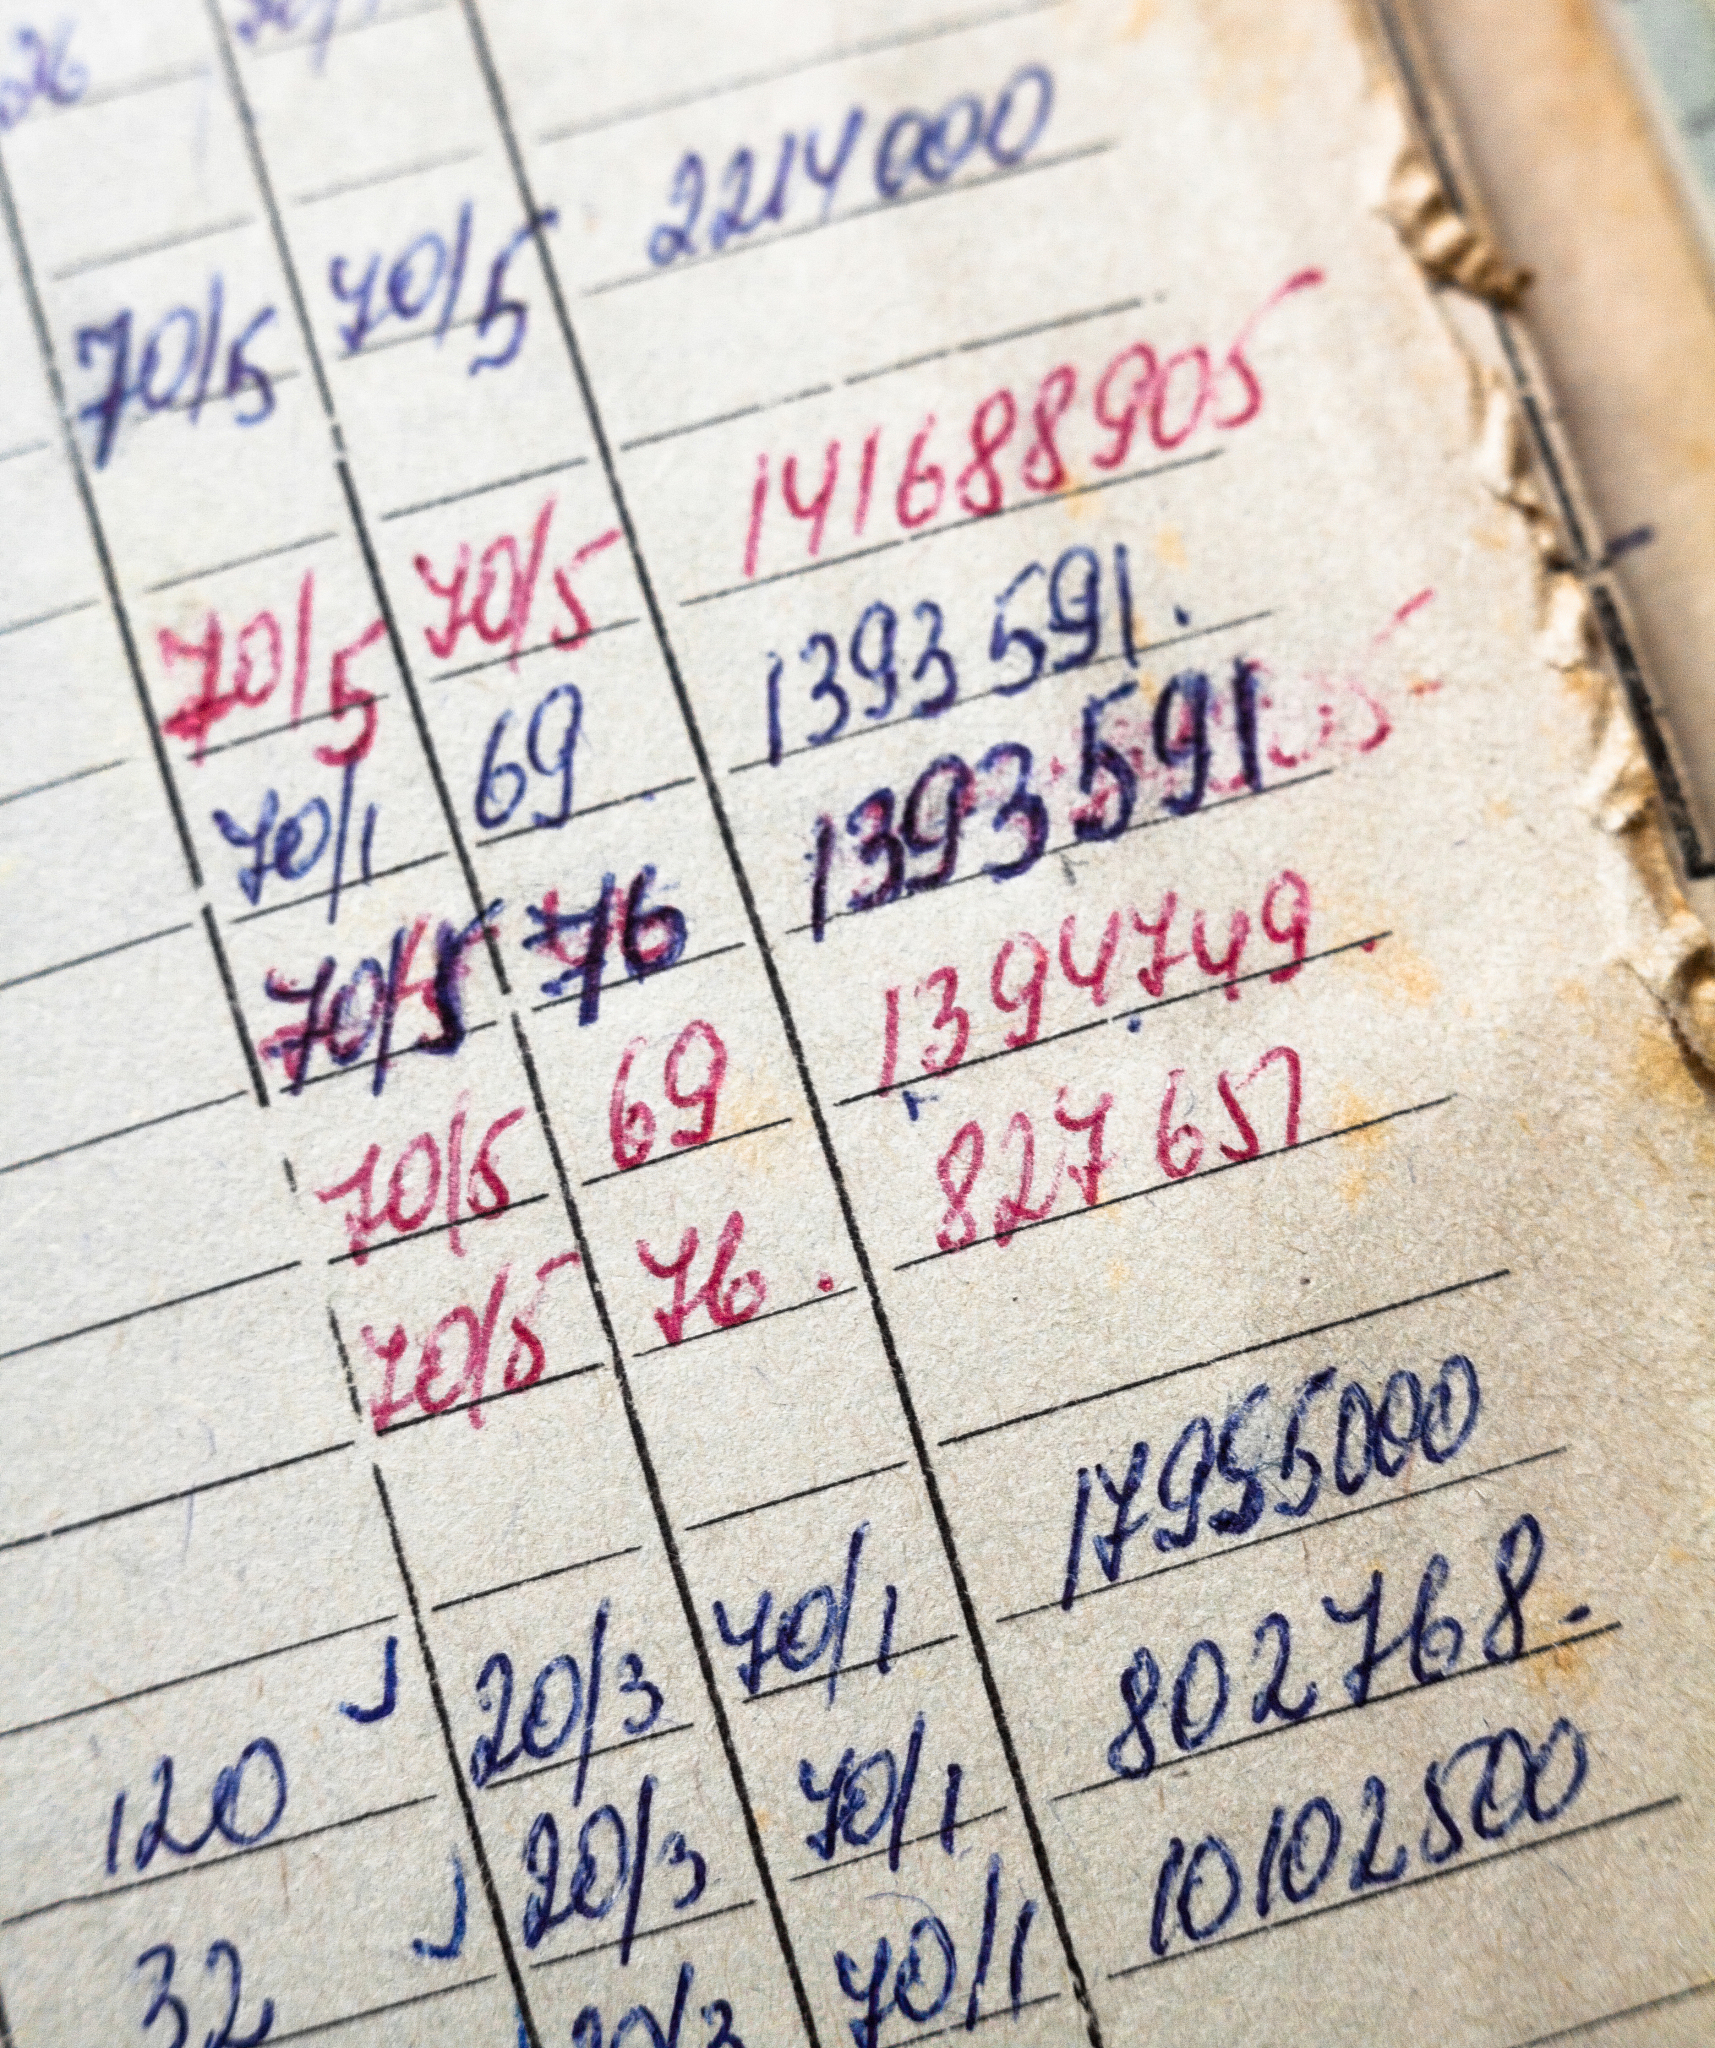 26
70/5 70/5 2214000
70/5 70/5 141688905
70/1 69 1393591.
70/5 76 1393591
70/5 69 1394749.
70/5 76. 827657
120 20/3 70/1 17955000
32 20/3 70/1 802768.
20/3 70/1 10102500